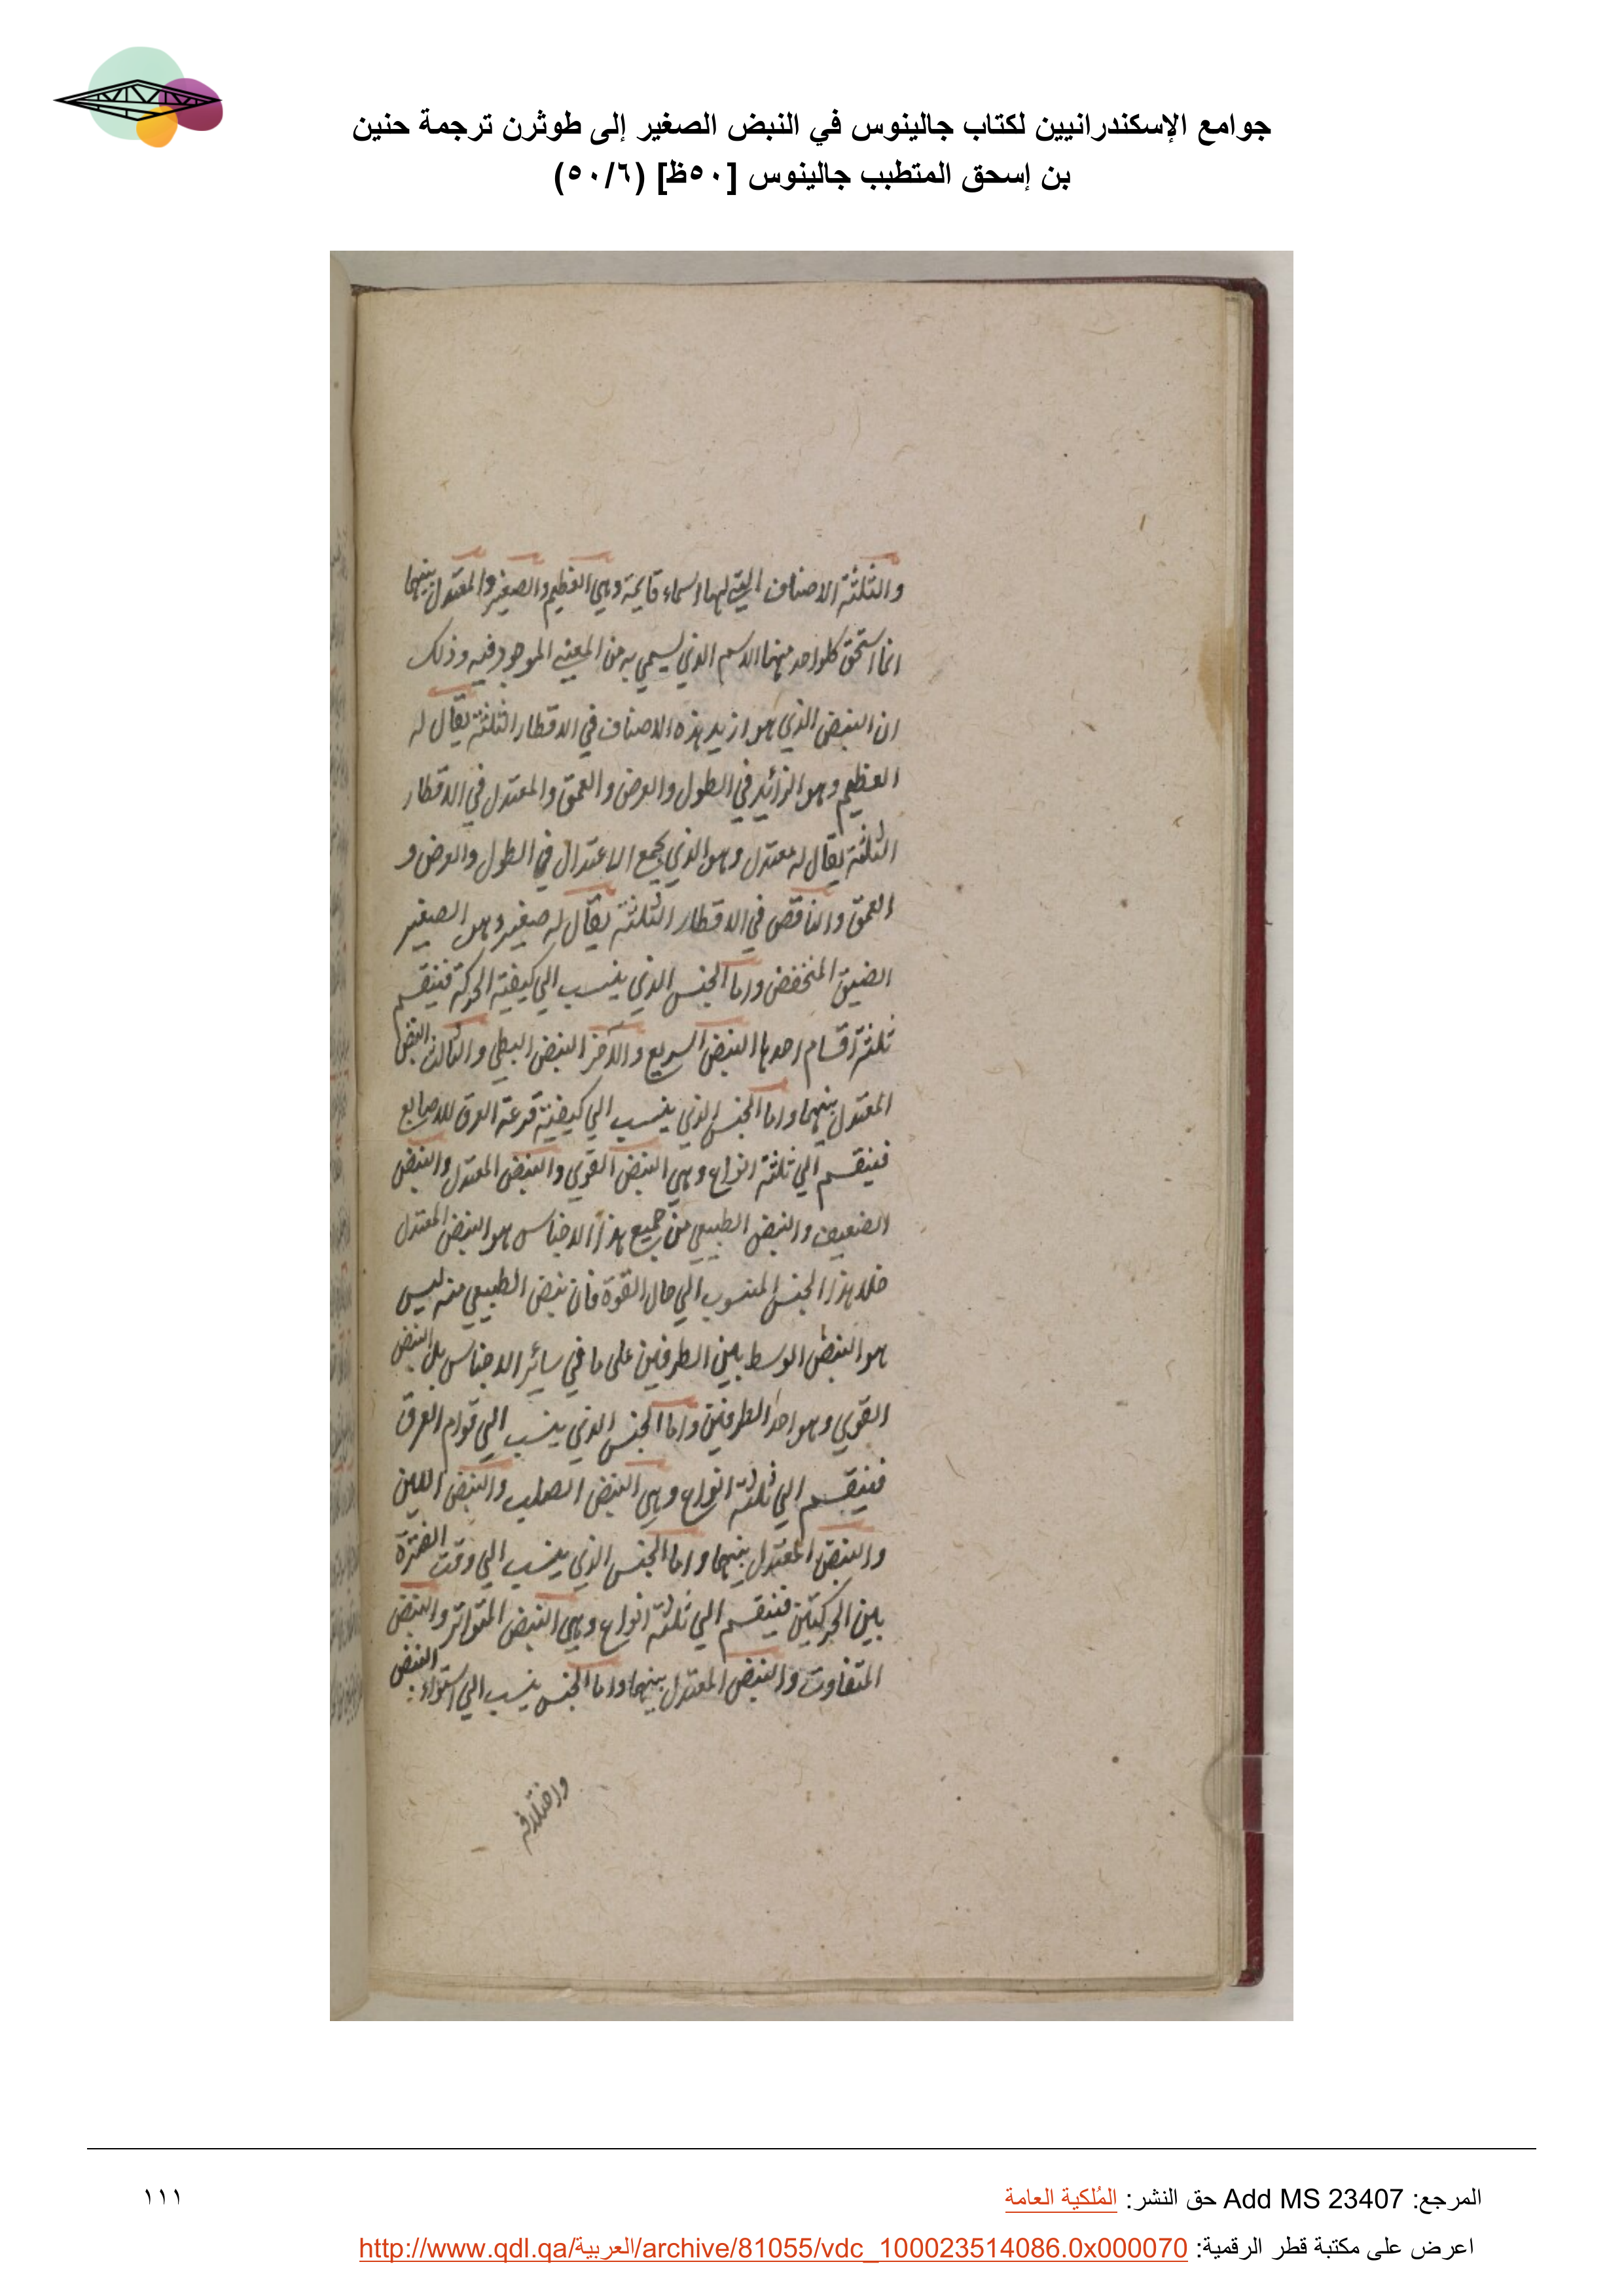 جوامع الإسكندرانيين لكتاب جالينوس في النبض الصغير إلى طوثرن ترجمة حنين
بن إسحق المتطبب جالينوس [٥٠ظ] (٥٠/٦)
والثلثة الاصناف التي لها اسماء قايمة وهي العظيم والصغير والمعتدل بينهما
انما استحق كلواحد منهما الاسم الذي يسمي به من المعني الموجود فيه وذلك
ان النبض الذي هو ازيد هذه الاصناف في الاقطار الثلثة يقال له
العظيم وهو الزائد في الطول والعرض والعمق والمعتدل في الاقطار
الثلثة يقال له معتدل وهو الذي يجمع الاعتدال في الطول والعرض و
العمق والناقص في الاقطار الثلثة يقال له صغير وهو الصغير
الضيق المنخفض واما الجنس الذي ينسب الي كيفية الحركة فينقسم
ثلثة اقسام احدها النبض السريع والاخر النبض البطي والثالث النبض
المعتدل بينهما واما الجنس الذي ينسب الي كيفية قرعة العرق للاصابع
فينقسم الي ثلثة انواع وهي النبض القوي والنبض المعتدل والنبض
الضعيف والنبض الطبيعي من جميع هذا الاجناس هو النبض المعتدل
خلا هذا الجنس المنسوب الي حال القوة فان نبض الطبيعي منه ليس
هو النبض الوسط بين الطرفين على ما في سائر الاجناس بل النبض
القوي وهو احد الطرفين واما الجنس الذي ينسب الي قوام العرق
فينقسم الي ثلثة انواع وهي النبض الصلب والنبض اللين
والنبض المعتدل بينهما واما الجنس الذي ينسب الي وقت الفترة
بين الحركتين فينقسم الي ثلثة انواع وهي النبض المتواتر والنبض
المتفاوت والنبض المعتدل بينهما واما الجنس ينسب الي استواء النبض
واختلافه
المرجع: Add MS 23407 حق النشر: المُلكية العامة
١١١
اعرض على مكتبة قطر الرقمية: http://www.qdl.qa/العربية/archive/81055/vdc_100023514086.0x000070